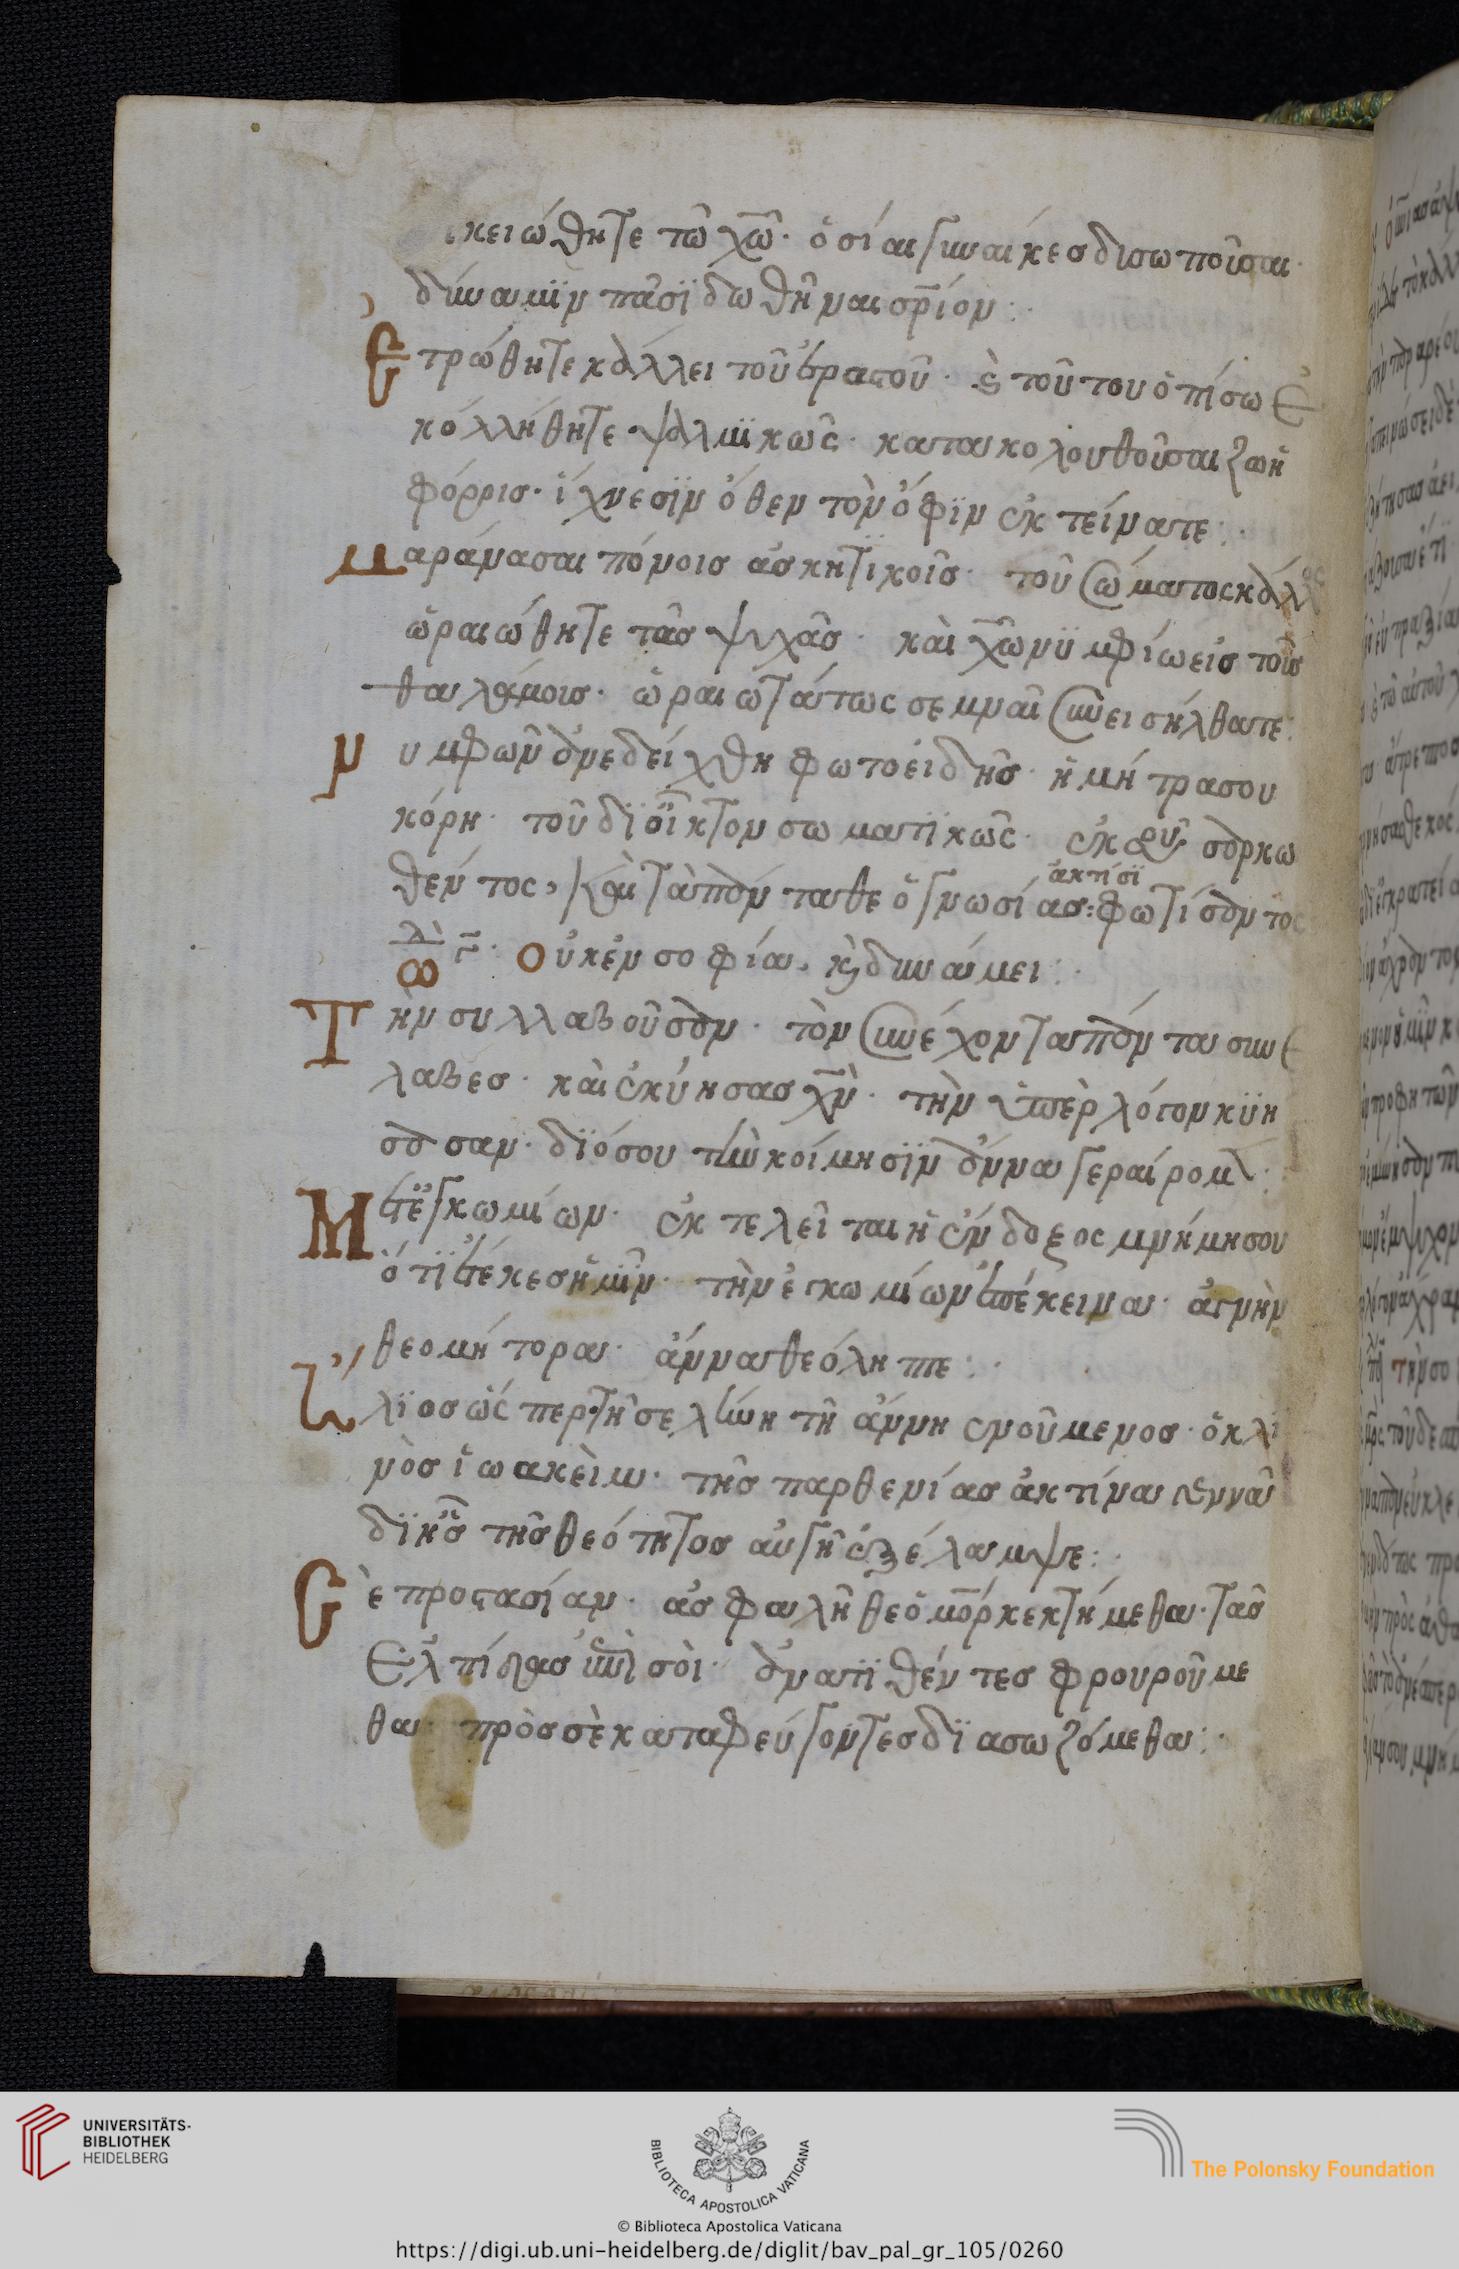 κειώθητε τῶ χ͞ῶ· ὅσίαι γυναίκεσ δυσωποῦσαι·
δύναμϊν πᾶσϊ δωθῆναι σ͞ρίον:
Ἐτρώθητε κάλλει τοῦ ἐραστοῦ· καὶ τοῦτου ὀπίσω ἐ
κόλλήθητε ψαλμϊκῶς· κατακολουθοῦσαι ζωη
φόροισ· ἴχνεσϊν ὅθεν τὸν ὄφϊν ἐκτείνατε:
μαράνασαι πόνοισ ἀσκητϊκοῖσ· τοῦ σώματος κάλλος
ὡραιώθητε τὰσ ψυχὰσ· καὶ χ͞ῶ νϋμφίω εἰσ τοὺσ
θαλάμοισ· ὡραιώτάτως σεμναὶ συνεισήλθατε:
νυμφῶν ἀνεδείχθη φωτοειδὴσ· ἡ μήτρα σου
κόρη· τοῦ δϊ οἶκτον σωματϊκῶς· ἐκ σοῦ σαρκω
θέντος, καὶ τὰ πάντα θεογνωσίασ: φωτίσαντος
ἀκτίσϊ
ω Οὐκ ἐν σοφία, καὶ δυνάμει:
Τὴν συλλαβοῦσαν· τὸν συνέχοντα πάντα συνε
λαβεσ· καὶ ἐκύησας χ͞ν· τὴν ὑπὲρ λόγον κϋη
σασαν· δϊό σου τὴν κοίμησϊν ἄννα γεραίρομεν:
Μετ' ἐγκωμίων· ἐκτελεῖται ἡ ἔνδοξος μνήμη σου
ὅτϊ ἔτεκεσ ἡμῖν· τὴν ἐγκωμίων ἐπέκεινα· ἁγνὴν
θεομήτορα· ἄννα θεόληπτε:
Ἥλϊοσ ὥς περ τῆ σελήνη τῆ ἄννη ἑνούμενοσ· ὁ κλϊ
νὸσ ἰωακεὶμ· τῆσ παρθενίασ ἀκτίνα γεννᾶ
δϊ ἧσ τῆσ θεότητοσ αὐγὴ ἐξέλαμψε:
Σὲ προστασίαν· ἀσφαλῆ θεομ͞ορ κεκτήμεθα· τὰσ
ἐλπίδασ ἐπὶ σοὶ· ἀνατϊθέντεσ φρουροῦμε
θα· πρὸσ σὲ καταφεύγοντεσ δϊασωζόμεθα:
UNIVERSITÄTS-
BIBLIOTHEK
HEIDELBERG
BIBLIOTECA APOSTOLICA VATICANA
The Polonsky Foundation
© Biblioteca Apostolica Vaticana
https://digi.ub.uni-heidelberg.de/diglit/bav_pal_gr_105/0260